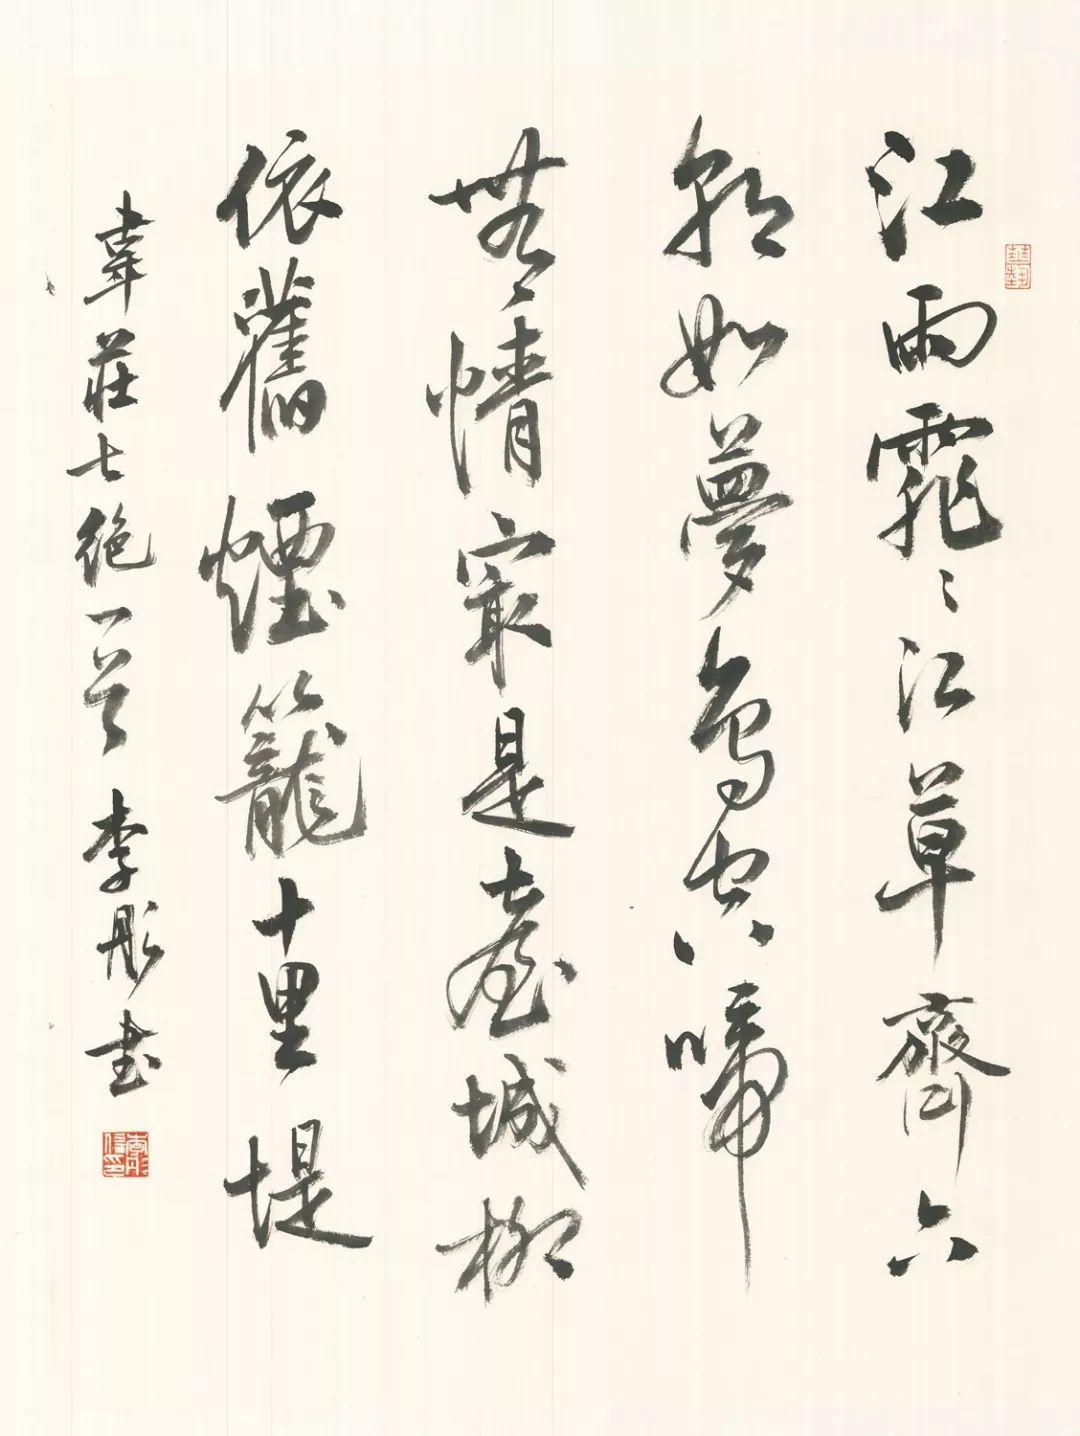 江雨霏〻江草齊六
朝如夢鳥空啼
無情最是臺城柳
依舊煙籠十里堤
韋莊七絕一首 李彤書